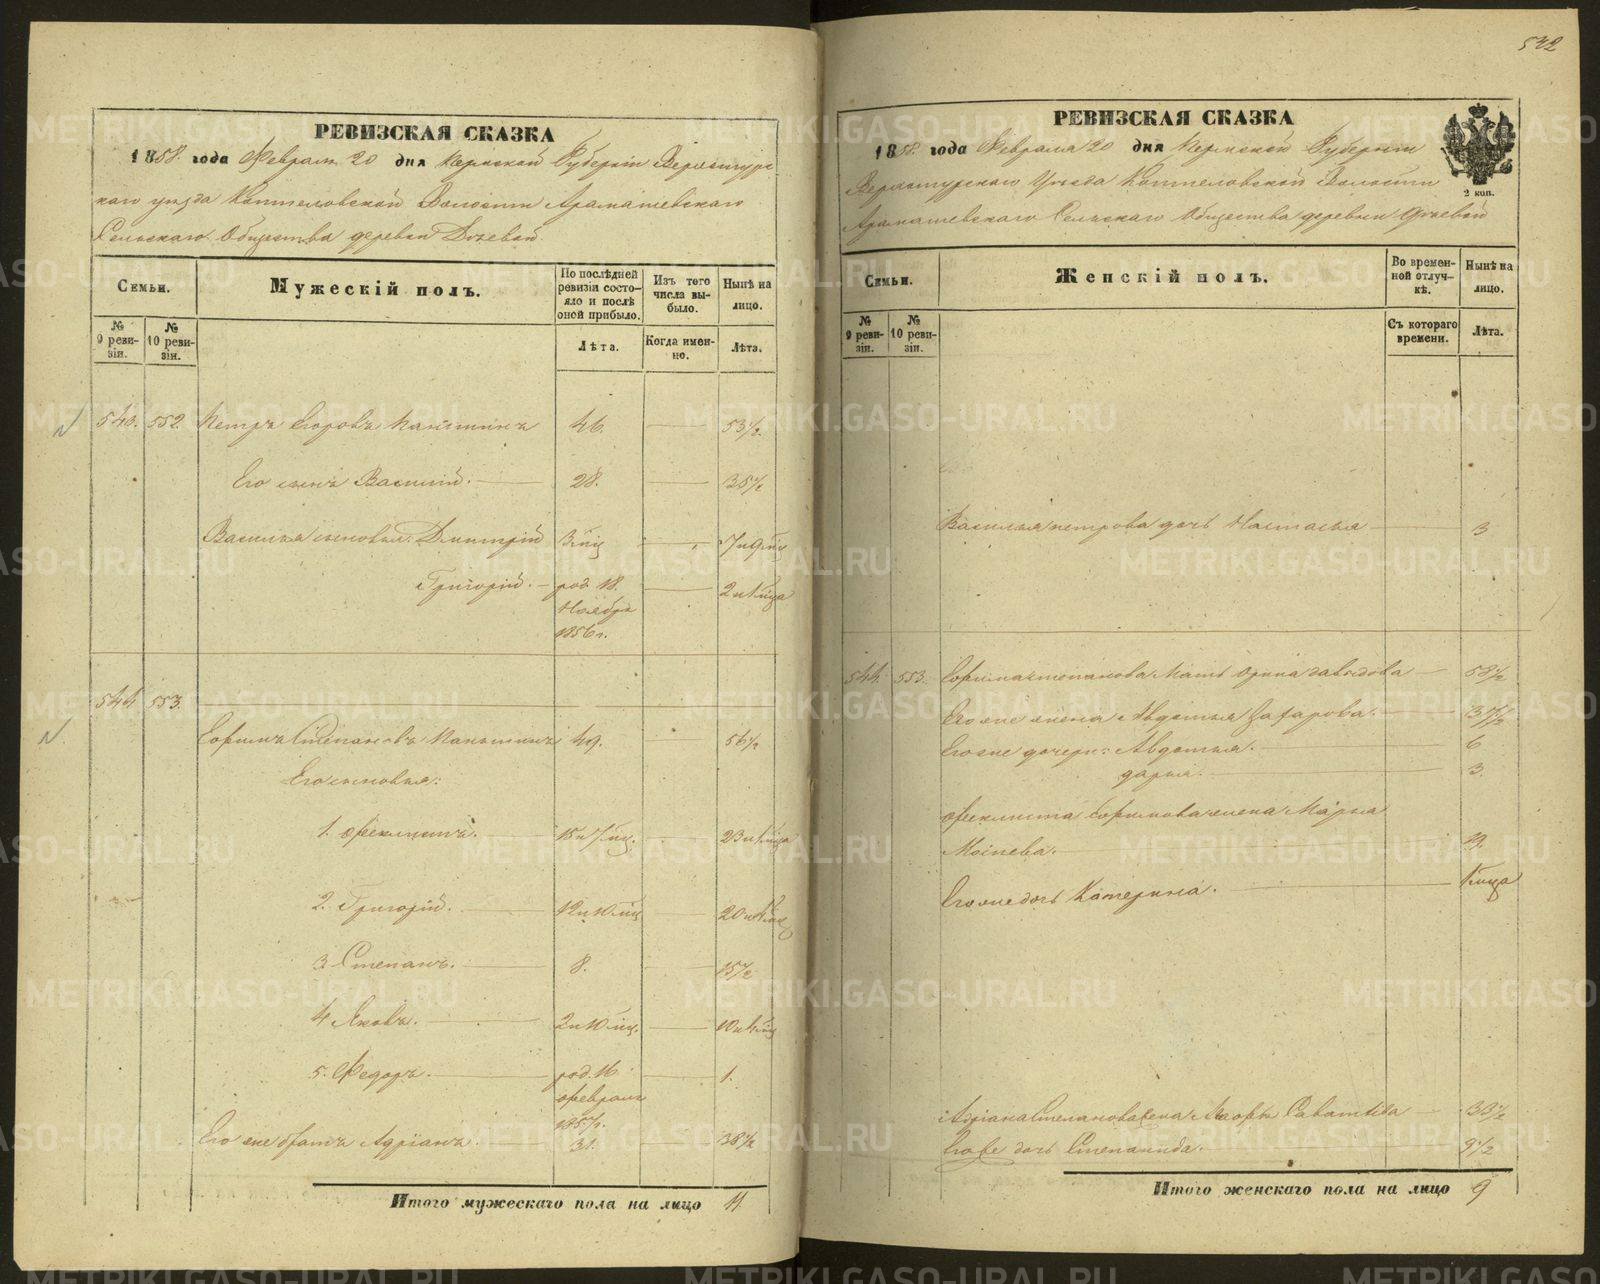 532
РЕВИЗСКАЯ СКАЗКА
1858 года Февраля 20 дня Пермской Губерніи Верхотурс-
каго уезда Коптеловской Волости Арамашевскаго
Сельскаго Общества деревни
Семьи.
Мужескій полъ.
По послѣдней ревизіи состояло и послѣ оной прибыло.
Изъ того числа выбыло.
Нынѣ на лицо.
№ 9 ревизіи.
№ 10 ревизіи.
Лѣта.
Когда именно.
Лѣта.
543. 552. Петръ Егоровъ 46. 53½
Его сынъ Василий. 28. 35½
Василья сыновья: Дмитрій
Григорій. род. 18. Ноября 1856 г.
544 553.
Ефимъ Степановъ 49. 56½
Его сыновья:
1. Феклистъ.
2. Григорій.
3. Степанъ. 8. 15½
4 Яковъ.
5. Федоръ. род. 16 февраля 1857 г. 1.
Его же братъ Адріанъ. 31. 38½
Итого мужескаго пола на лицо 11
РЕВИЗСКАЯ СКАЗКА
1858 года Февраля 20 дня Пермской Губерніи
Верхотурскаго Уезда Коптеловской Волости
Арамашевскаго Сельскаго Общества деревни
2 коп.
Семьи.
Женскій полъ.
Во временной отлучкѣ.
Нынѣ на лицо.
№ 9 ревизіи.
№ 10 ревизіи.
Съ котораго времени.
Лѣта.
Василья петрова дочь Настасья 3
544. 553. Ефима степанова Мать Орина давыдова 58½
Его же жена Авдотья Захарова. 37½
Его же дочери: Авдотья. 6
дарья. 3.
Феклиста Ефимова жена Марья
Моісеева. 19.
Его же дочь Катерина.
Адріана Степанова жена 33½
Его же дочь Степанида. 9½
Итого женскаго пола на лицо 9
METRIKI.GASO-URAL.RU